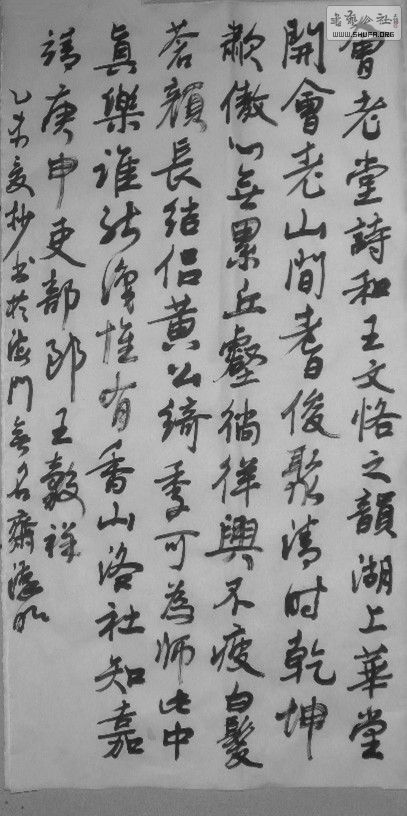 會老堂詩和王文恪之韻湖上華堂
開會老山間耆俊聚清时乾坤
歗傲心無累丘壑徜徉興不疲白髮
蒼顏長結侣黃公綺季可為師此中
真樂誰能得惟有香山洛社知嘉
靖庚申吏部郎王穀祥
乙未夏抄书於海門無名齋
WWW.SHUFA.ORG